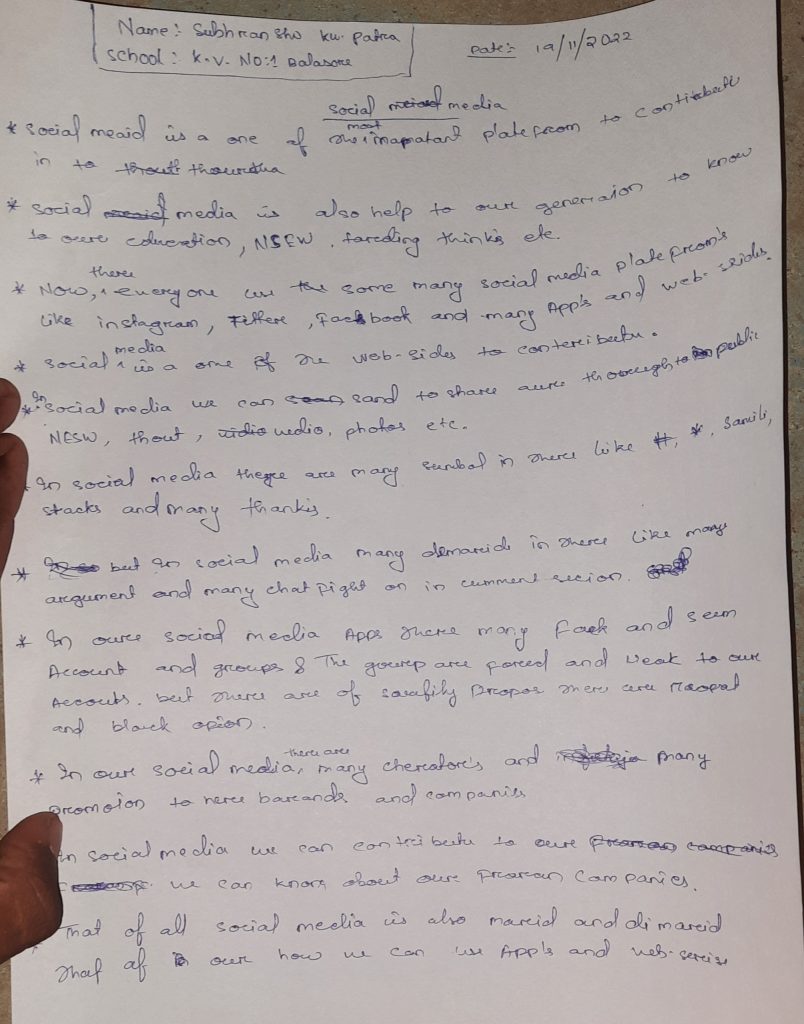 Name:- Subhranshu Ku. Patra
School:- K.V. No:1 Balasore
Date:- 19/11/2022
social media
* social meaid is a one of the most imapatant plateform to contitebute
in to
* social media is also help to our generaion to know
to oure education, NSEW, think's etc.
* Now, there everyone use some many social media platefrom's
like instagram, , Facebook and many App's and web-sides.
* social media is a one of the web-sides to conteribeutu.
* In social media we can sand to share aure thorough to public
NESW, thout, vedio, photos etc.
In social media there are many sumbol in there like #, *,
stacks and many thankis.
* but In social media many demareid in there like many
argument and many chat fight on in cumment secion.
* In oure social media Apps there many faek and seem
Account and groups & The gourep are forced and weak to our
Accouts. but there are of there are
and black opion.
* In our social media, there are many and many
promoion to here barands and companies
In social media we can contribeutu to oure
we can know about our companies.
That of all social media is also mareid and dimareid
that of our how we can use App's and web-